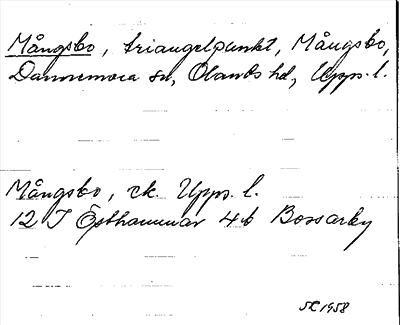 Mångsbo, triangelpunkt, Mångsbo,
Dannemora sn, Olands hd, Upps. l.
Mångsbo, ek. Upps. l.
12 I Östhammar 4b Bossarby
1958